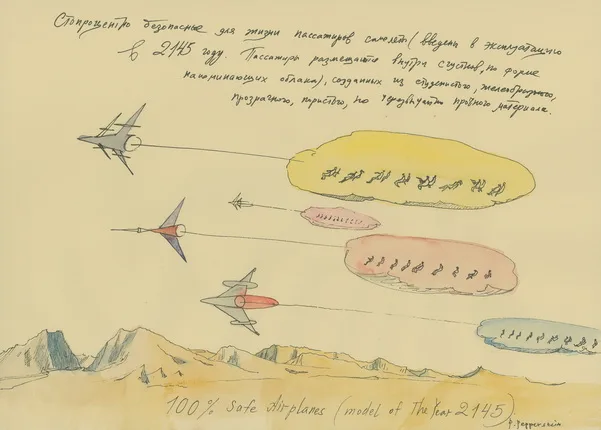 Стопроцентно безопасные для жизни пассажиров самолеты (введены в эксплуатацию
в 2145 году. Пассажиры размещаются внутри сгустков, по форме
напоминающих облака), созданных из студенистого, желеобразного,
прозрачного, пористого, но чрезвычайно прочного материала.
100% Safe Airplanes (model of The Year 2145)
P. Peppershtein